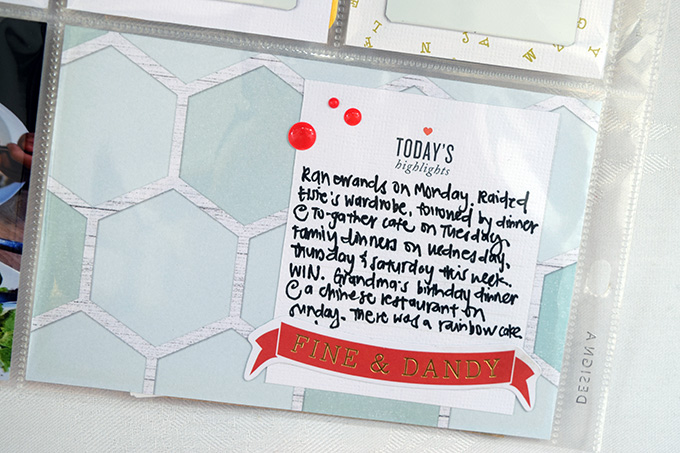 TODAY'S
highlights
Ran errands on Monday. Raided
Elsie's wardrobe, followed by dinner
@ To-gather cafe on Tuesday.
Family dinners on Wednesday,
Thursday & Saturday this week.
WIN. Grandma's birthday dinner
@ a chinese restaurant on
Sunday. There was a rainbow cake
FINE & DANDY
DESIGN A